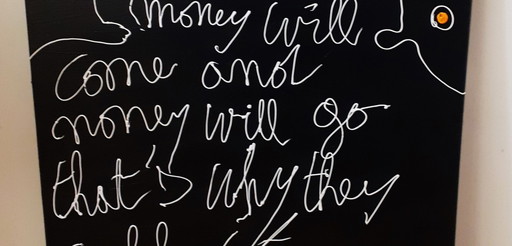 money will
come and
money will go
that's why they